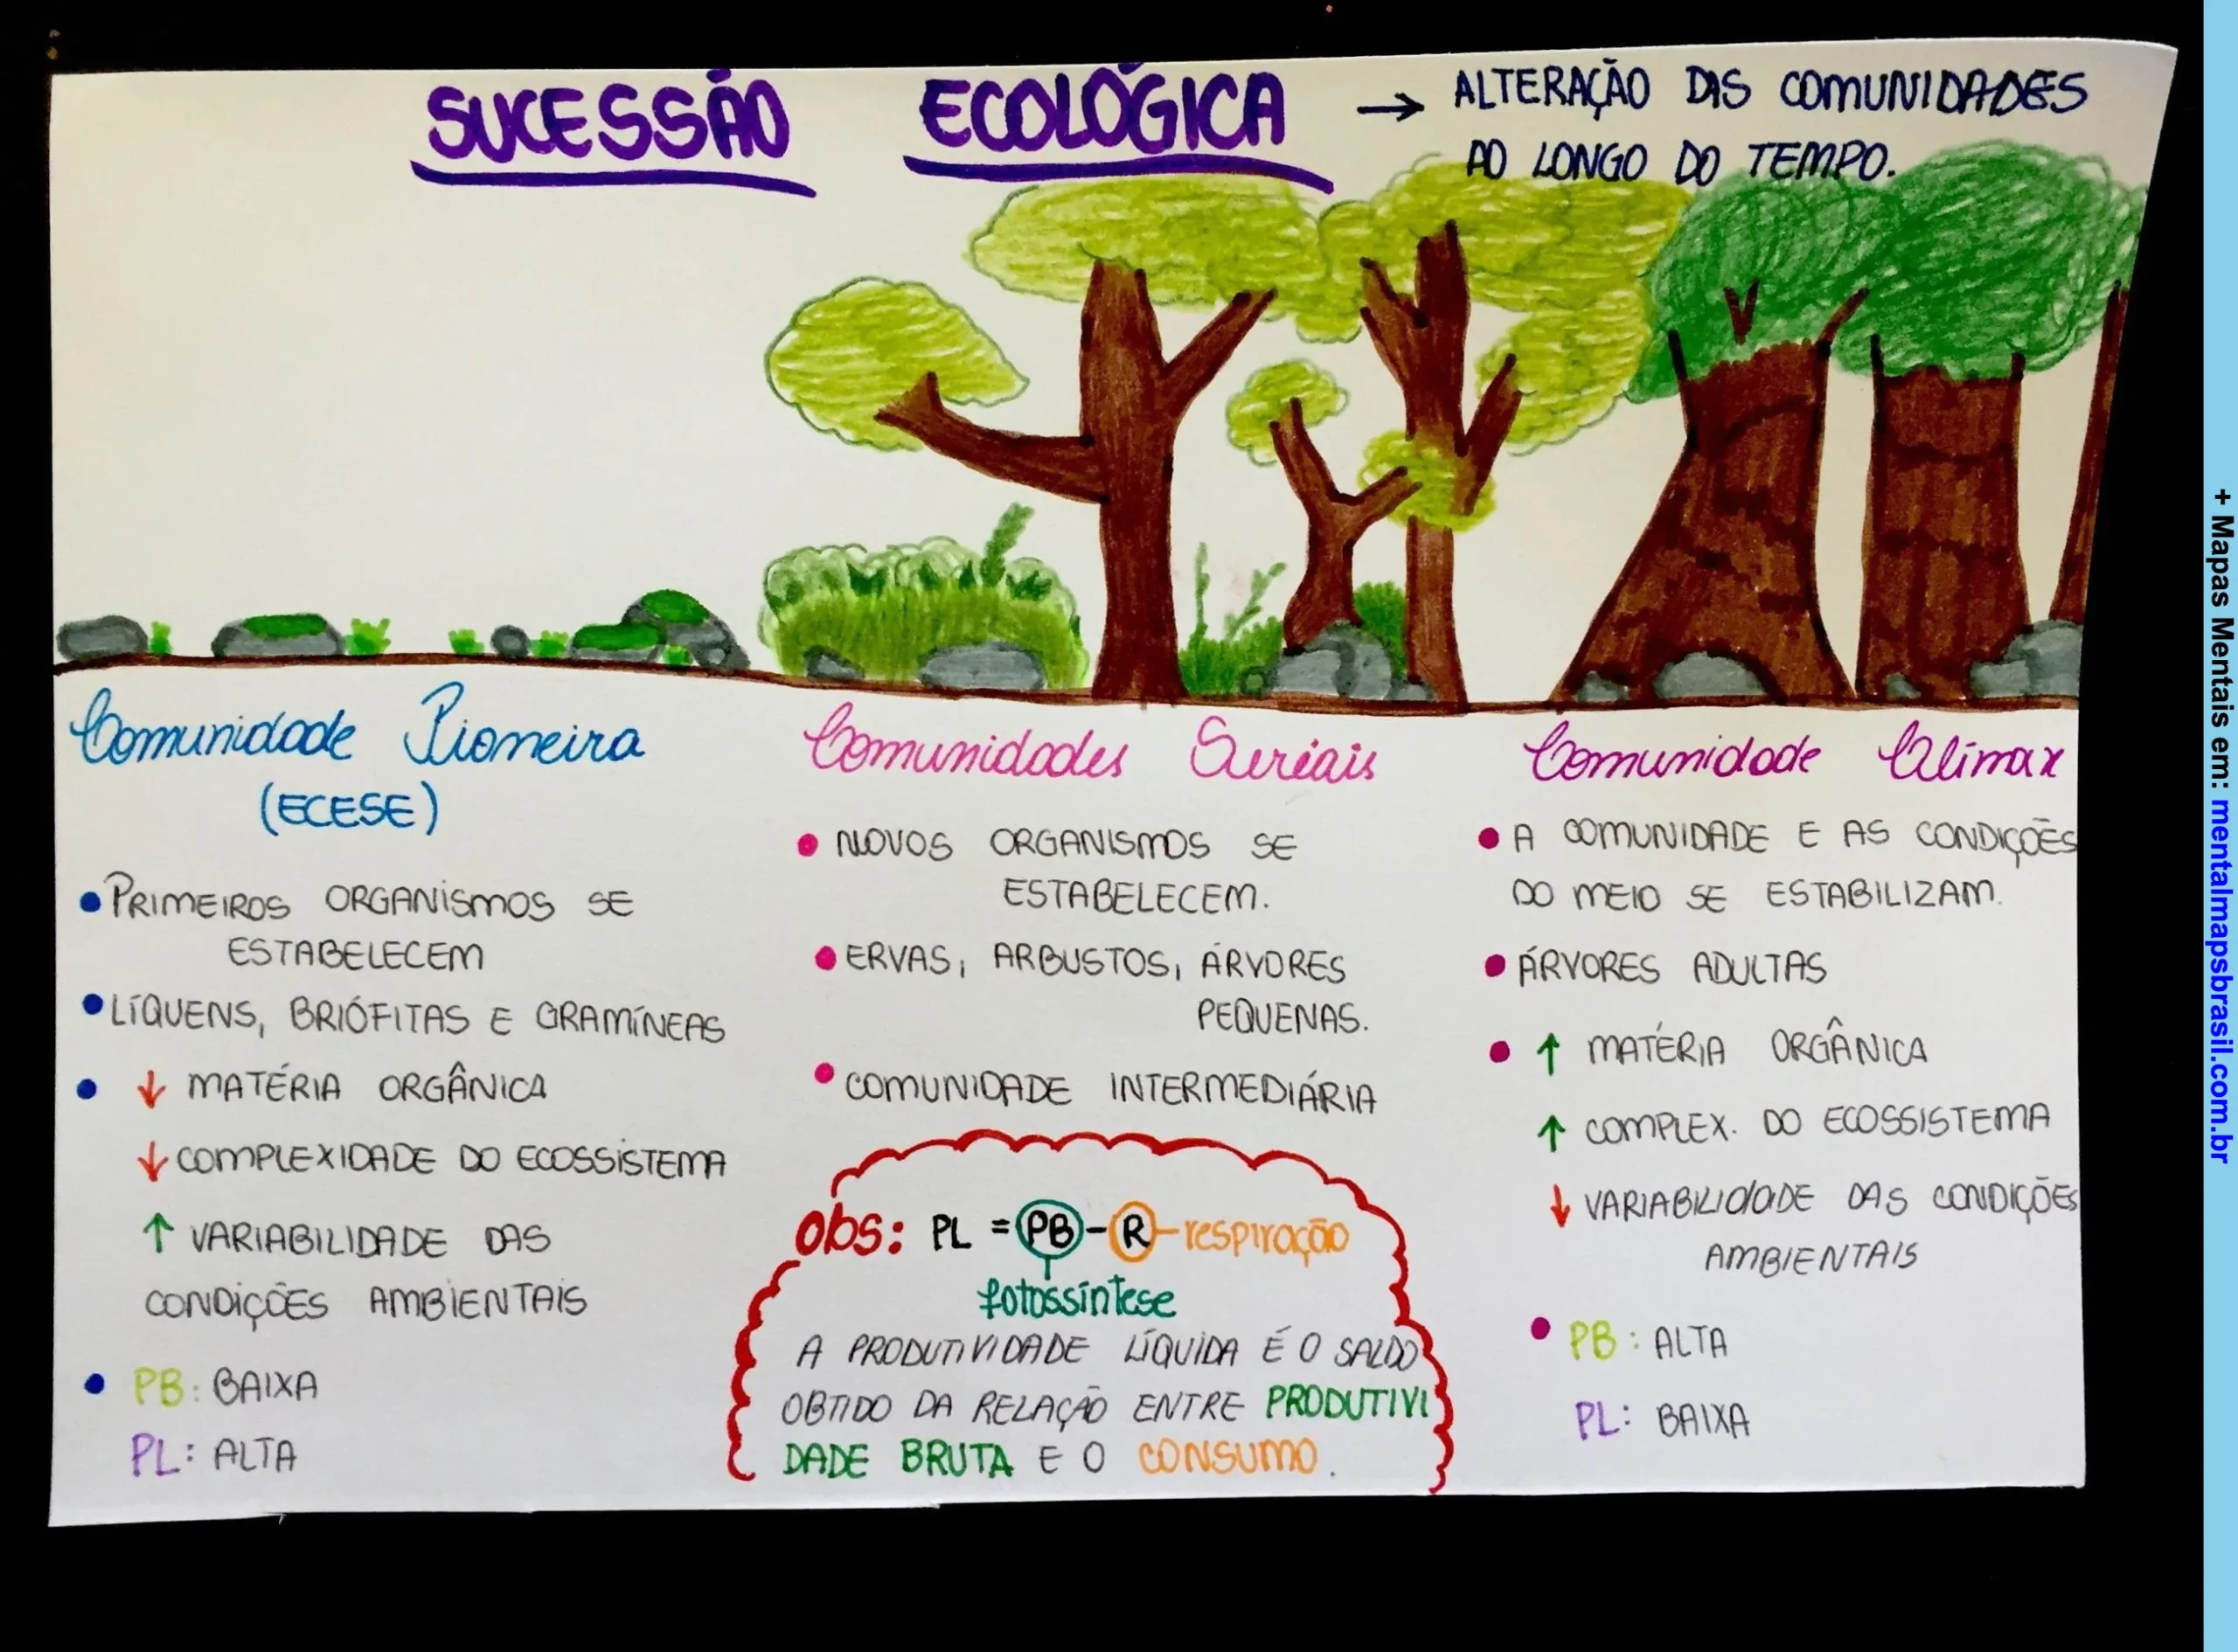 SUCESSÃO ECOLÓGICA → ALTERAÇÃO DAS COMUNIDADES
AO LONGO DO TEMPO.
Comunidade Pioneira
(ECESE)
• PRIMEIROS ORGANISMOS SE
ESTABELECEM
• LÍQUENS, BRIÓFITAS E GRAMÍNEAS
• ↓ MATÉRIA ORGÂNICA
↓ COMPLEXIDADE DO ECOSSISTEMA
↑ VARIABILIDADE DAS
CONDIÇÕES AMBIENTAIS
• PB: BAIXA
PL: ALTA
Comunidades Seriais
• NOVOS ORGANISMOS SE
ESTABELECEM.
• ERVAS, ARBUSTOS, ÁRVORES
PEQUENAS.
• COMUNIDADE INTERMEDIÁRIA
obs: PL = PB - R - respiração
fotossíntese
A PRODUTIVIDADE LÍQUIDA É O SALDO
OBTIDO DA RELAÇÃO ENTRE PRODUTIVI
DADE BRUTA E O CONSUMO.
Comunidade Clímax
• A COMUNIDADE E AS CONDIÇÕES
DO MEIO SE ESTABILIZAM.
• ÁRVORES ADULTAS
• ↑ MATÉRIA ORGÂNICA
↑ COMPLEX. DO ECOSSISTEMA
↓ VARIABILIDADE DAS CONDIÇÕES
AMBIENTAIS
• PB: ALTA
PL: BAIXA
+ Mapas Mentais em: mentalmapsbrasil.com.br